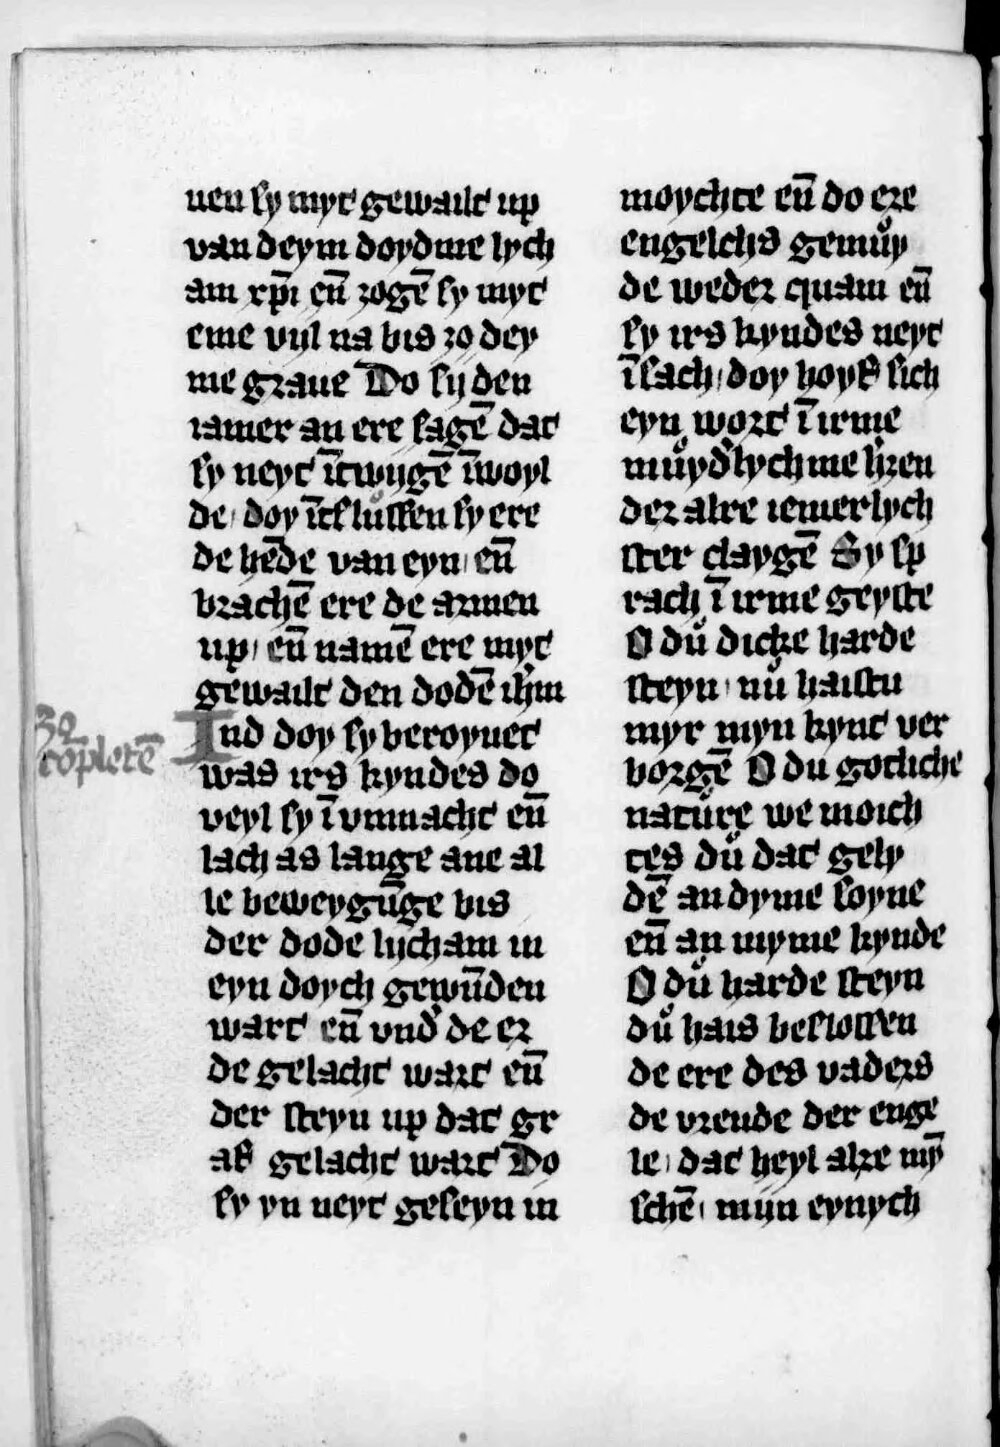 uen sy myt gewailt up
van deym doydme lych
am xp̄i en̄ zogē sy myt
eme vijl na bis zo dey
me graue Do sij den
iamer an ere sagē dat
sy neyt īt wijgē īwoyl
de doy ītslůssen sy ere
de hēde van eyn en̄
brachē ere de armen
up en̄ namē ere myt
gewailt den dodē ihm̄
zo
cōpletē
Ind doy sy beroyuet
was irs kyndes do
veyl sy ī vmmacht en̄
lach as lange ane al
le beweygūge bis
der dode lycham in
eyn doych gewūden
wart en̄ vnd' de er
de gelacht wart en̄
der steyn up dat gr
af gelacht wart Do
sy yn neyt geseyn in
moychte en̄ do ere
engelchs gemůy
de weder quam en̄
sy irs kyndes neyt
ī sach doy hoyf sich
eyn wort ī irme
můyd'lychme hzen
der alre iemerlych
ster claygē Sy sp
rach ī irme geyste
O dů dicke harde
steyn nů haistu
myr myn kynt ver
borgē O du gotliche
natůre we moich
tes dů dat gely
dē an dyme soyne
en̄ an myme kynde
O dů harde steyn
dů hais beslossen
de ere des vaders
de vreude der enge
le dat heyl alre my̅
schē mijn eynych